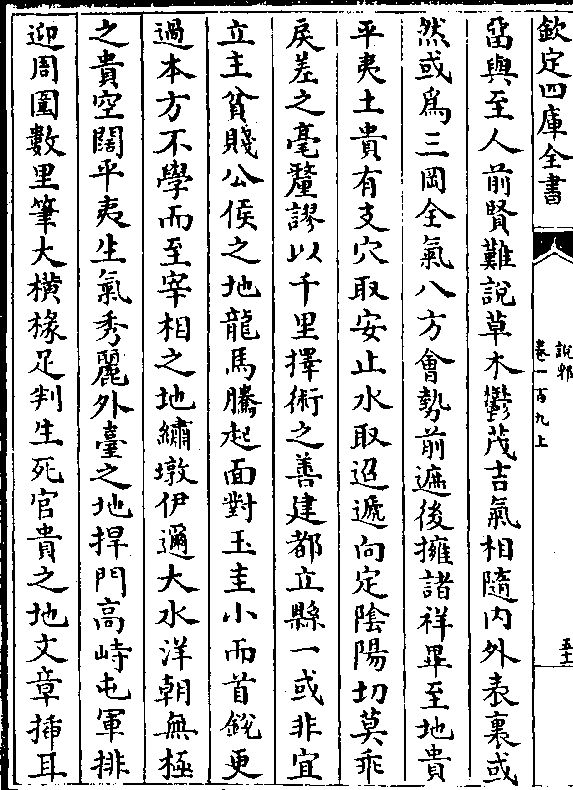 欽定四庫全書
說郛
卷一百九上
至
當與至人前賢難說草木鬱茂吉氣相隨内外表裏或
然或爲三岡全氣八方會勢前遮後擁諸祥畢至地貴
平夷土貴有支穴取安止水取迢遞向定陰陽切莫乖
戾差之毫釐謬以千里擇術之善建都立縣一或非宜
立主貧賤公侯之地龍馬騰起面對玉圭小而首銳更
過本方不學而至宰相之地繡墩伊邇大水洋朝無極
之貴空闊平夷生氣秀麗外臺之地捍門高峙屯軍排
迎周圍數里筆大橫椽足判生死官貴之地文章揷耳